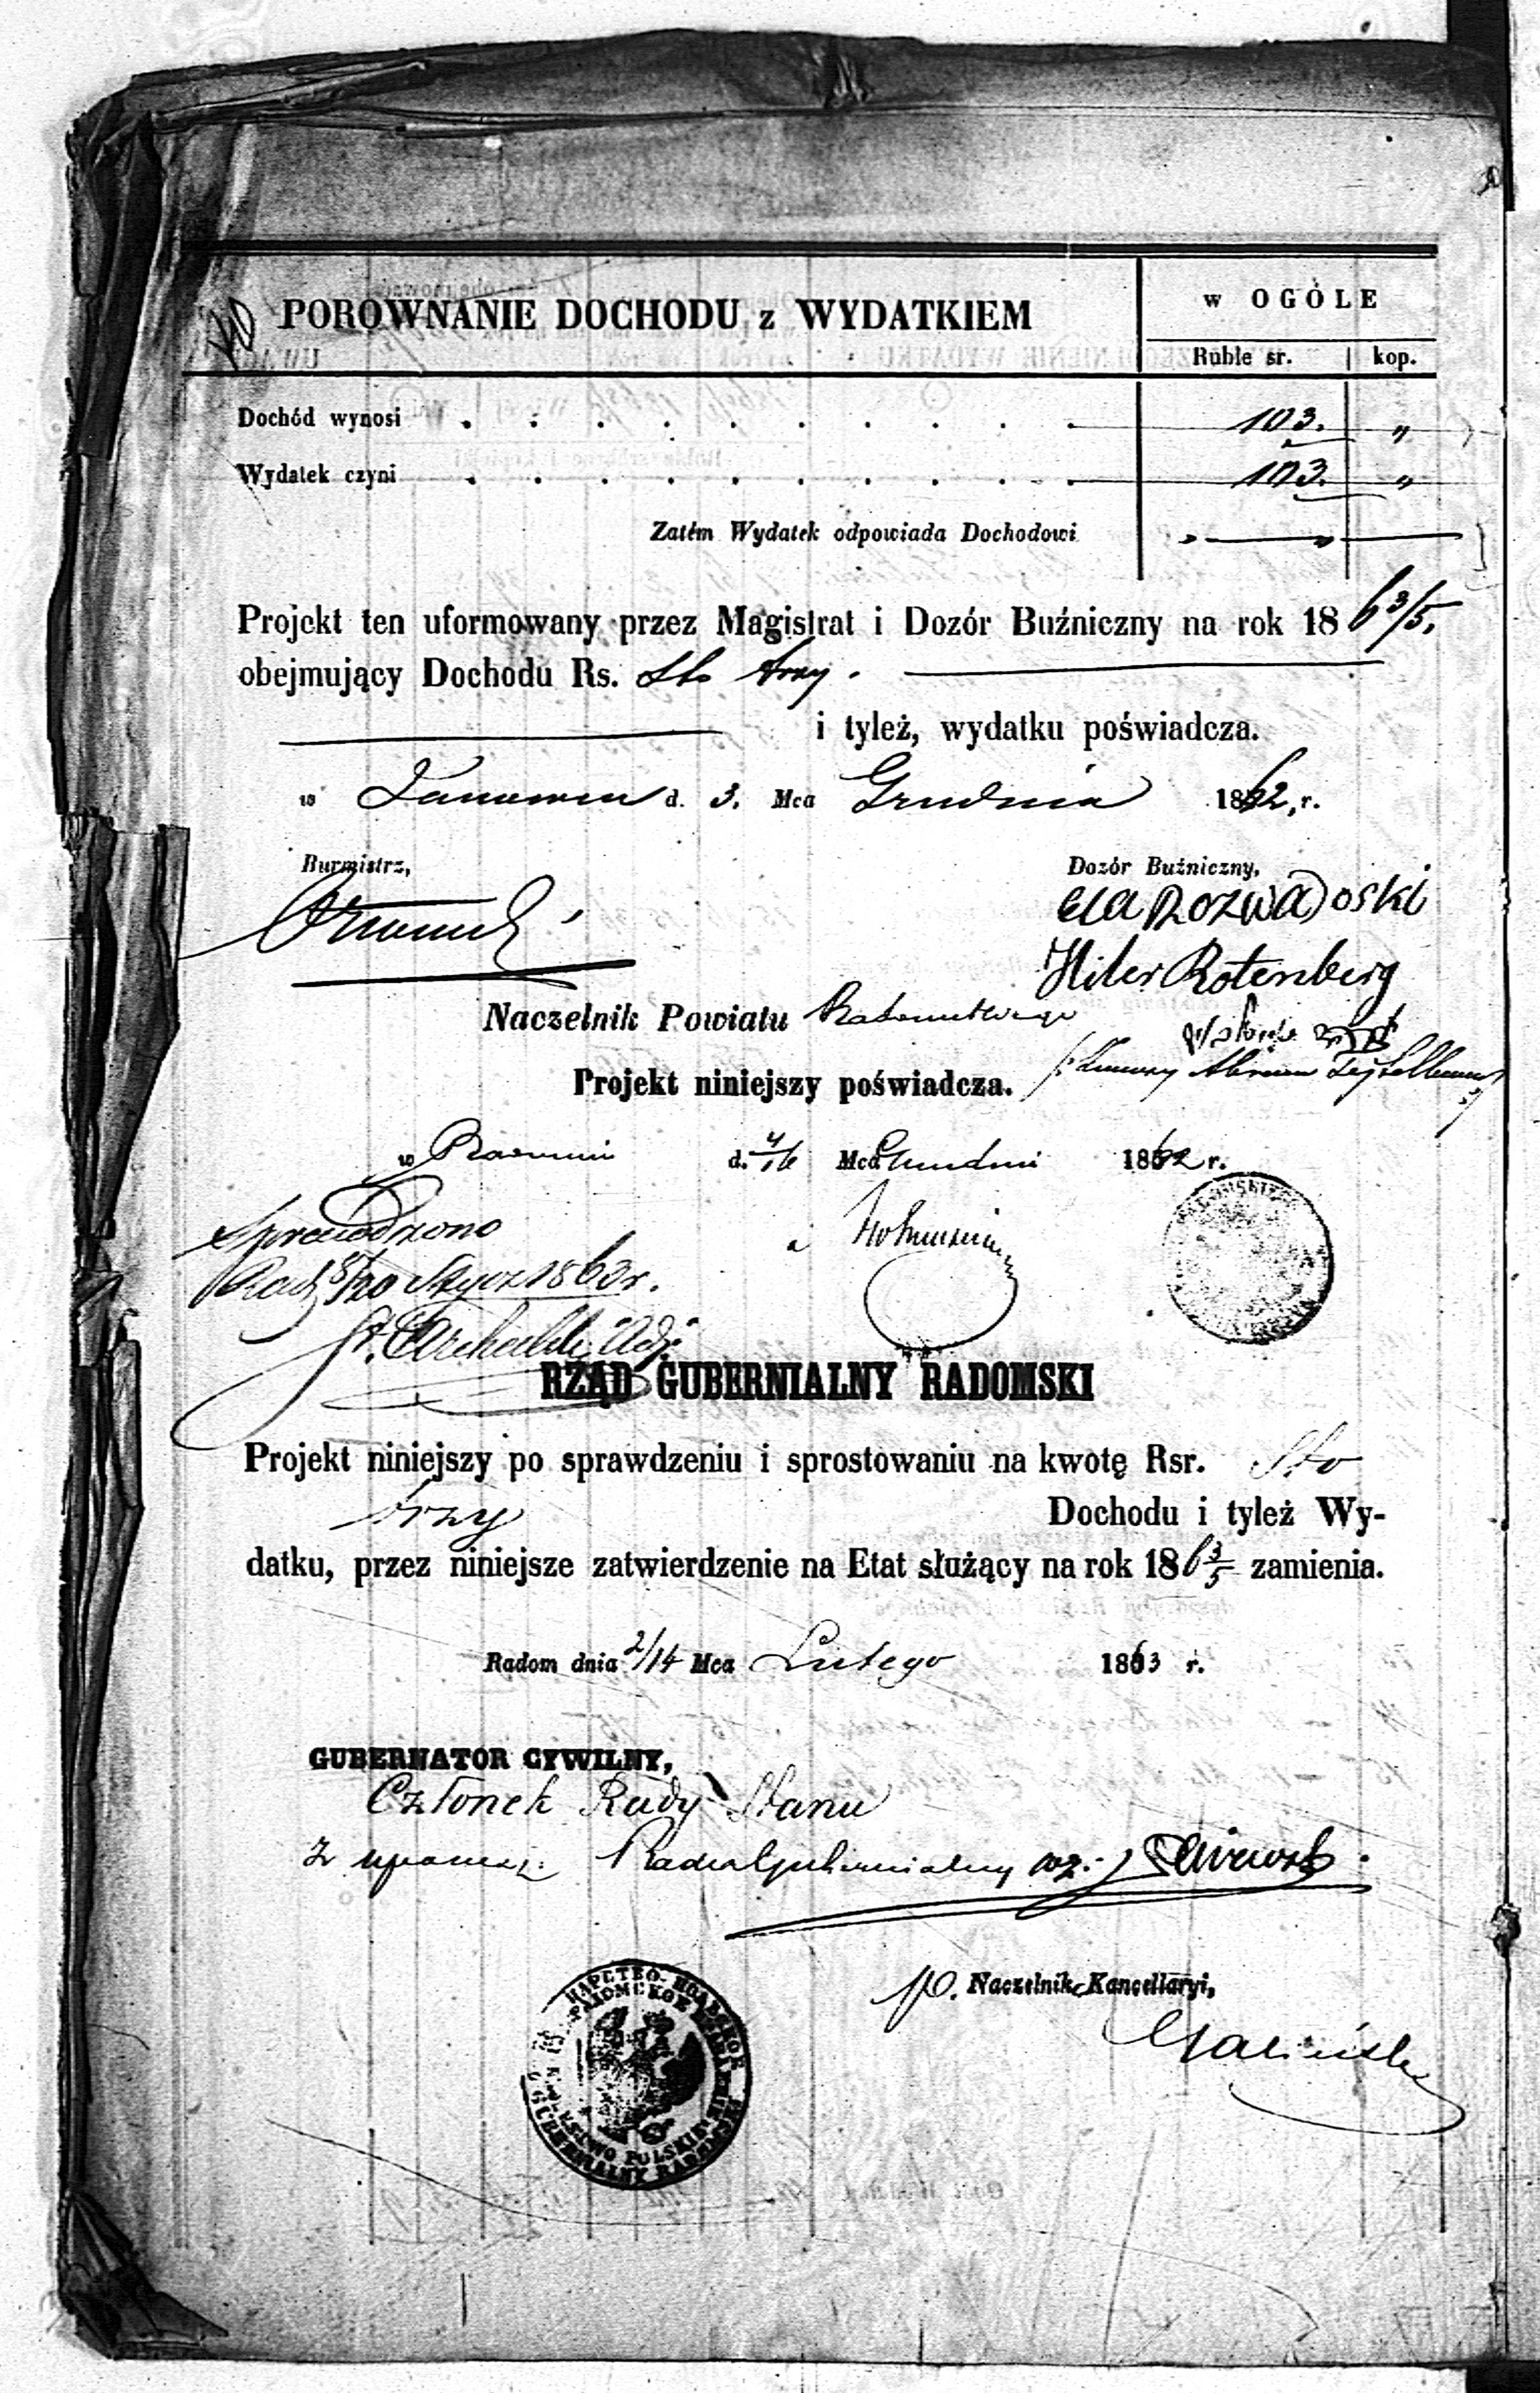 POROWNANIE DOCHODU z WYDATKIEM
w OGÓLE
Ruble sr. kop.
Dochód wynosi . . . . . . . . . . 103. „
Wydatek czyni . . . . . . . . . . 103. „
Zatém Wydatek odpowiada Dochodowi „ — „ —
Projekt ten uformowany przez Magistrat i Dozór Buźniczny na rok 1863/5.
obejmujący Dochodu Rs. Sto trzy.
i tyleż, wydatku poświadcza.
w d. 3. Mca Grudnia 1862, r.
Burmistrz, Dozór Buźniczny,
Ela Rozwadoski
Hiler Rotenberg
Naczelnik Powiatu
Projekt niniejszy poświadcza. Abram
w Radomiu d. 4/16 Mca Grudnia 1862 r.
Sprawdzono
Rad 8/20 Stycz 1863 r.
RZĄD GUBERNIALNY RADOMSKI
Projekt niniejszy po sprawdzeniu i sprostowaniu na kwotę Rsr. Sto
trzy Dochodu i tyleż Wy-
datku, przez niniejsze zatwierdzenie na Etat służący na rok 1863/5 zamienia.
Radom dnia 2/14 Mca Lutego 1863 r.
GUBERNATOR CYWILNY,
Członek Rady Stanu
z Radca Gubernialny wz.
p.o. Naczelnik Kancellaryi,